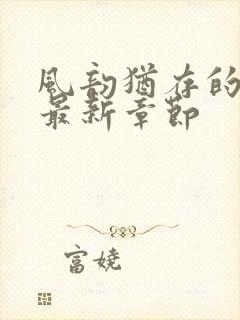 風韵猶存的
最新章節
富娆